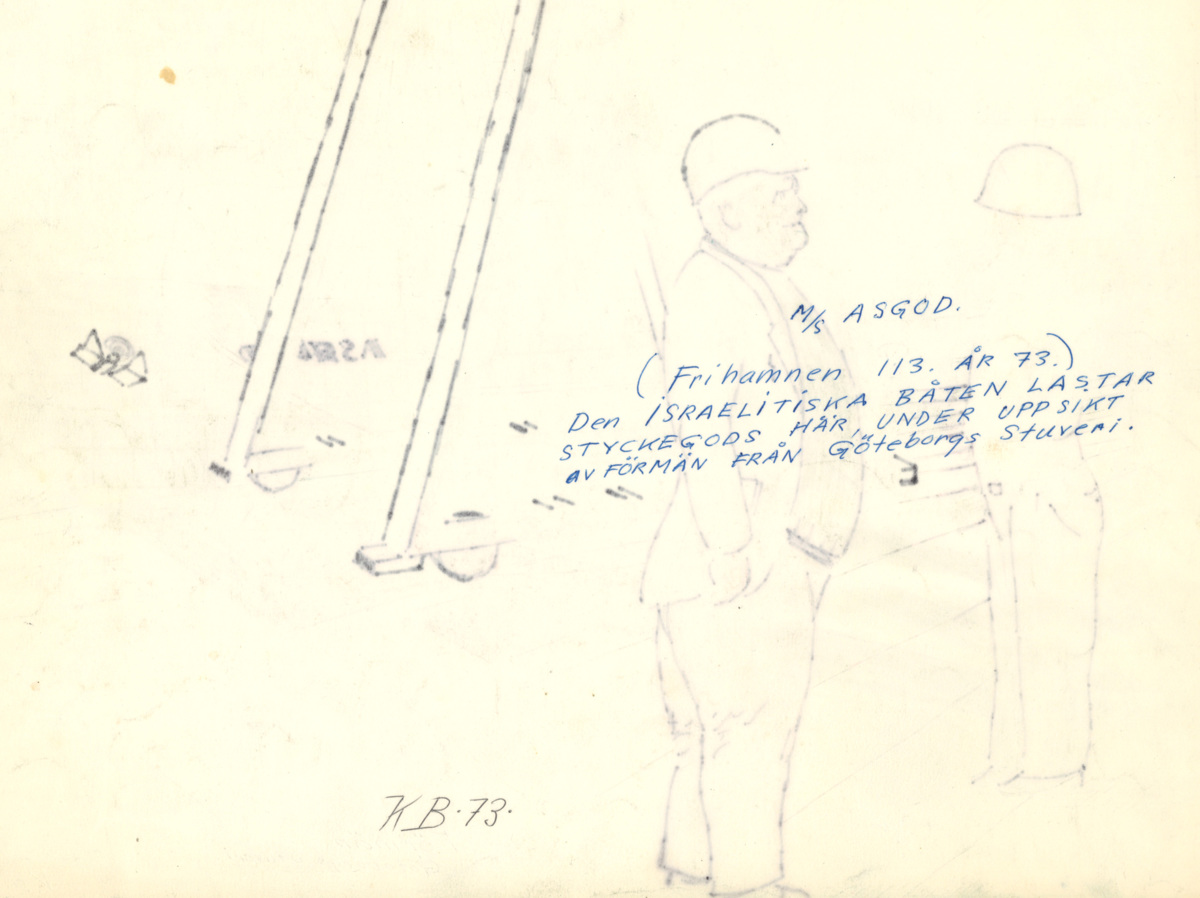 M/S ASGOD.
(Frihamnen 113. ÅR 73.)
Den ISRAELITISKA BÅTEN LASTAR
STYCKEGODS HÄR, UNDER UPPSIKT
av FÖRMÄN FRÅN Göteborgs Stuveri.
KB.73.